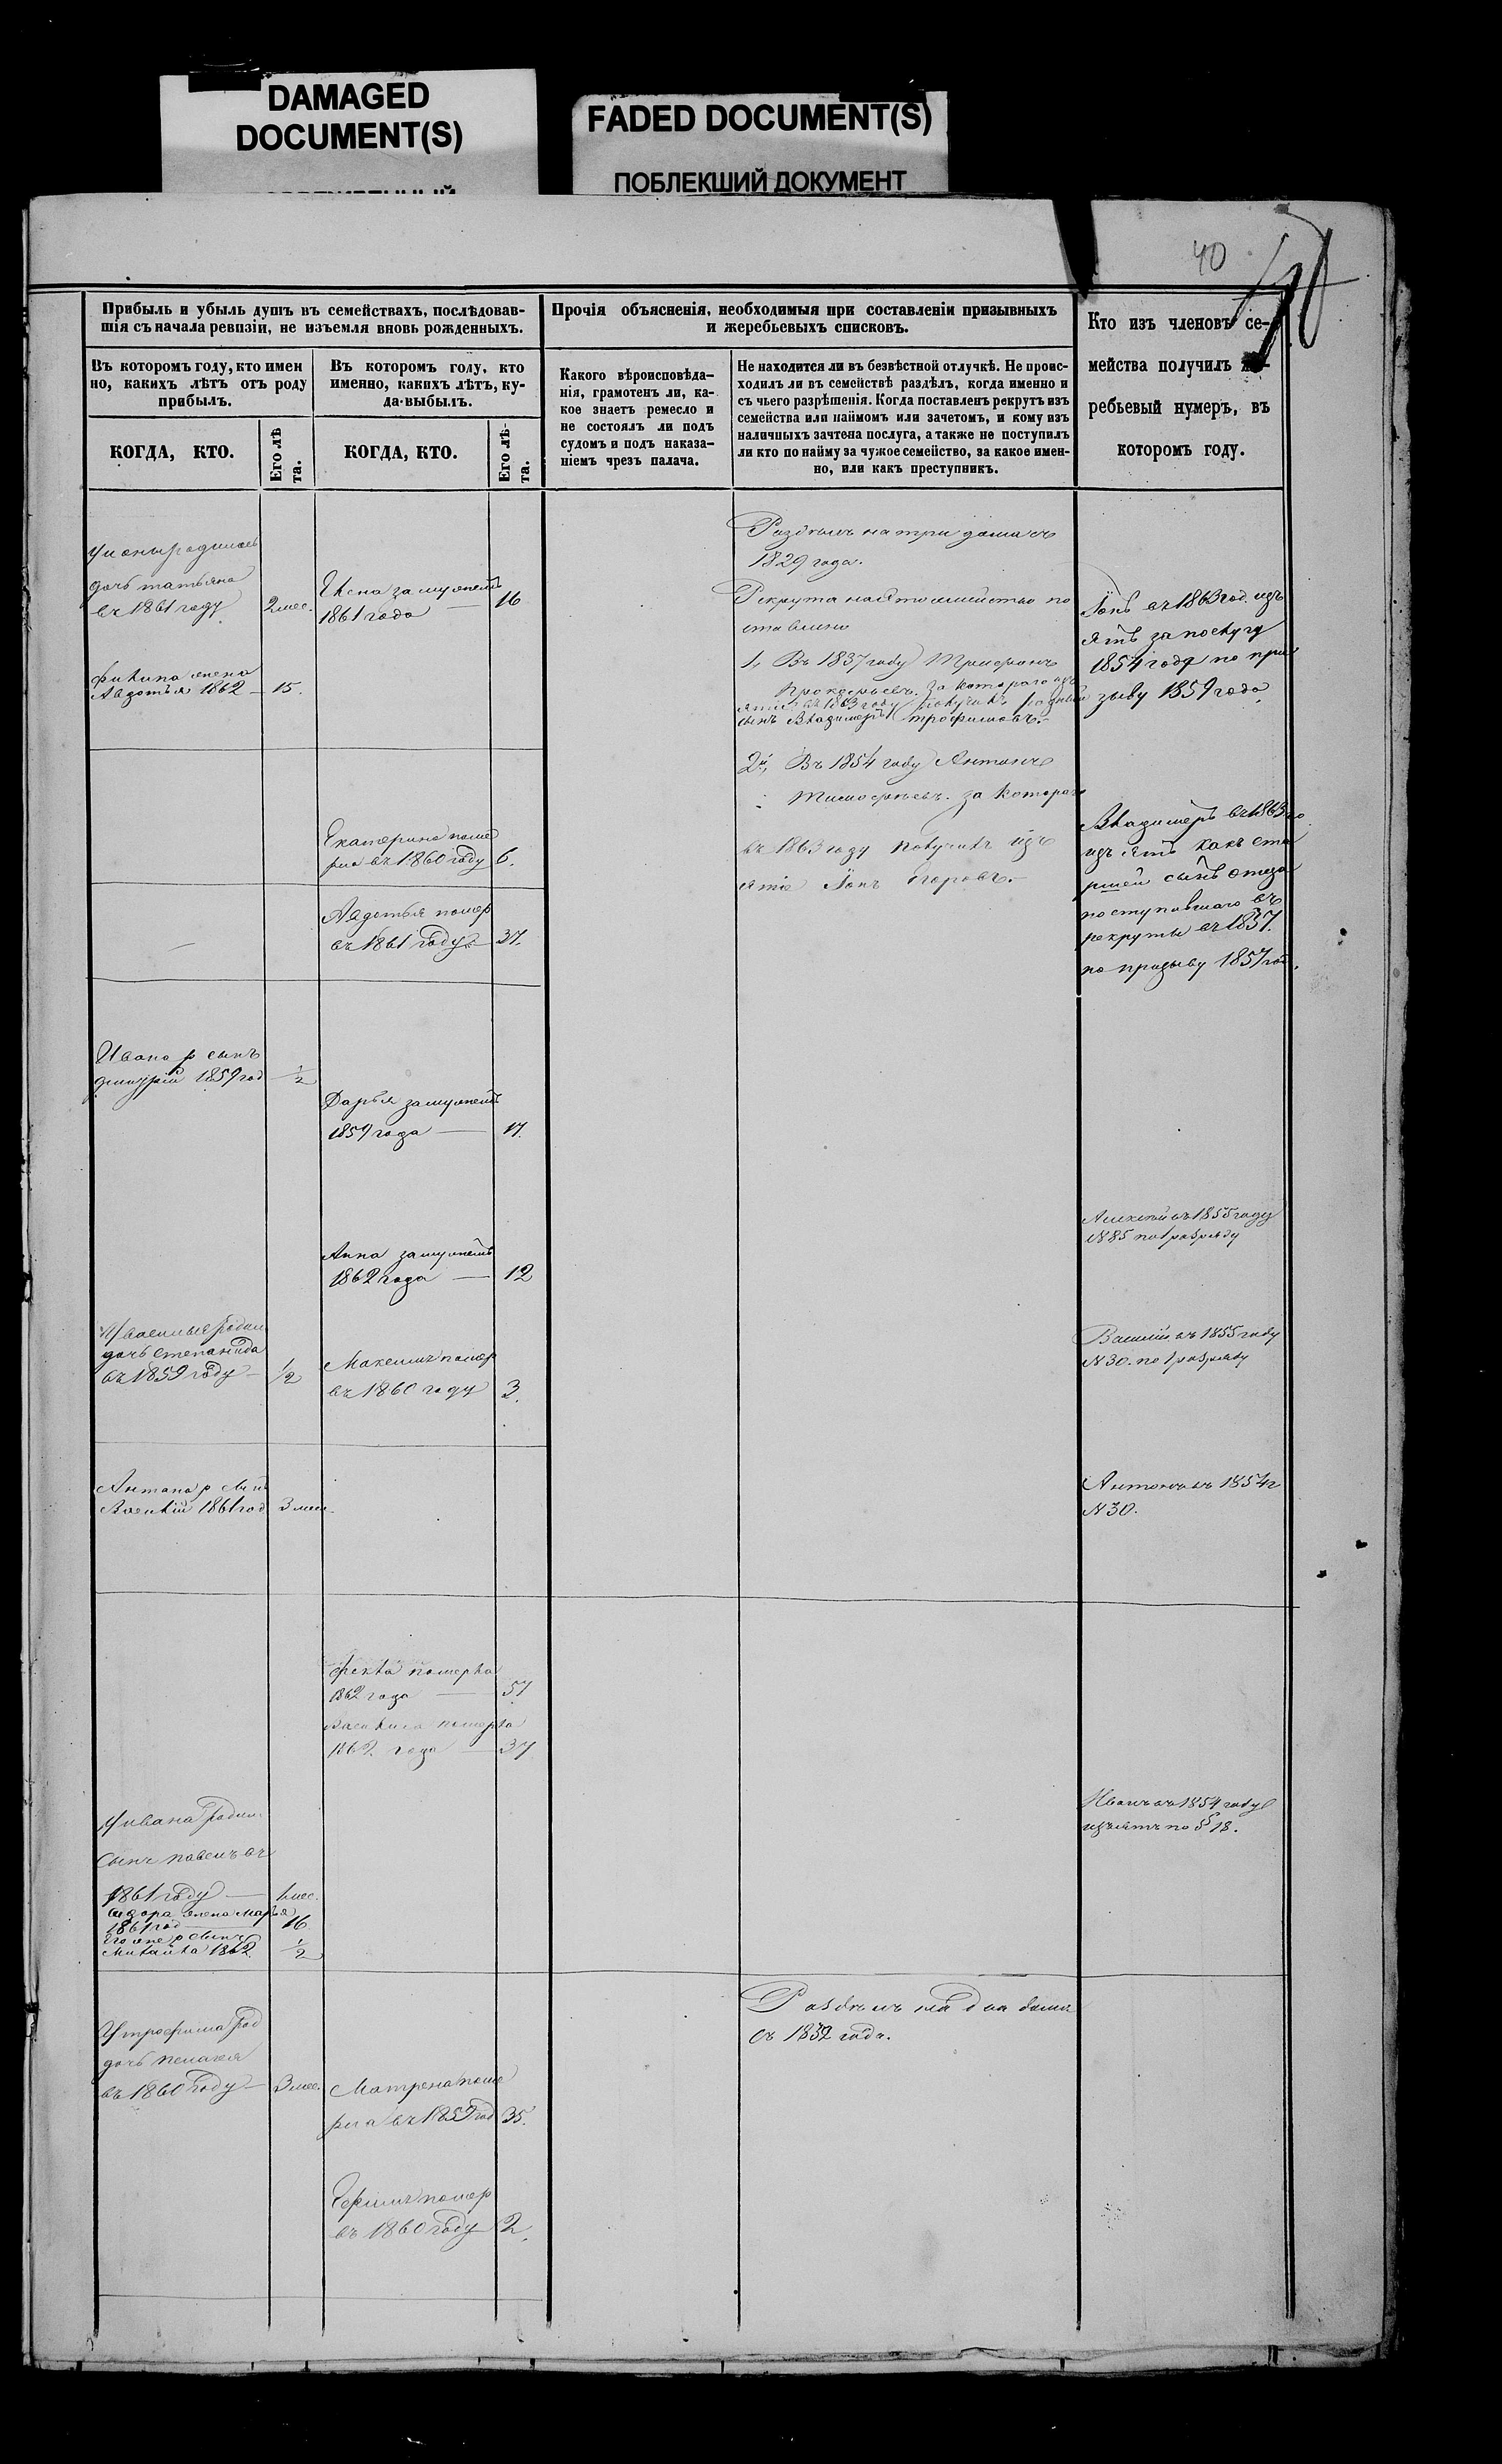 DAMAGED
DOCUMENT(S)
FADED DOCUMENT(S)
ПОБЛЕКШИЙ ДОКУМЕНТ
40
Прибыль и убыль душъ въ семействахъ, послѣдовав-
шія съ начала ревизіи, не изъемля вновь рожденныхъ.
Въ которомъ году, кто имен
но, какихъ лѣтъ отъ роду
прибылъ.
Въ которомъ году, кто
именно, какихъ лѣтъ, ку-
да-выбылъ.
КОГДА, КТО.
Его лѣ
та.
КОГДА, КТО.
Его лѣ-
та.
Прочія объясненія, необходимыя при составленіи призывныхъ
и жеребьевыхъ списковъ.
Какого вѣроисповѣда-
нія, грамотенъ ли, ка-
кое знаетъ ремесло и
не состоялъ ли подъ
судомъ и подъ наказа-
ніемъ чрезъ палача.
Не находится ли въ безвѣстной отлучкѣ. Не проис-
ходилъ ли въ семействѣ раздѣлъ, когда именно и
съ чьего разрѣшенія. Когда поставленъ рекрутъ изъ
семейства или наймомъ или зачетомъ, и кому изъ
наличныхъ зачтена послуга, а также не поступилъ
ли кто по найму за чужое семейство, за какое имен-
но, или какъ преступникъ.
Кто изъ членовъ се-
мейства получилъ
ребьевый нумеръ, въ
которомъ году.
дочь татьяна
въ 1861 году
2 мес.
филипа жена
Авдотья 1862
15.
замужемъ
1861 года
16
Екатерина поме
рла въ 1860 году
6.
Авдотья помер
въ 1861 году
37.
Ивана р сынъ
дмитрій 1859 год
1/2
Дарья замужемъ
1859 года
17.
Анна замужемъ
1862 года
12
дочь степанида
въ 1859 году
1/2
Максимъ помер
въ 1860 году
3.
Антона р сынъ
Василій 1861 год
3 мес.
Фекла померла
1862 года
57
Василиса померла
1862 года
37
У ивана родил
сынъ павелъ въ
1861 году
1 мес.
сидора жена Марья
1861 год
16
его же р сынъ
Михайла 1862.
1/2
У трофима род
дочь пелагея
въ 1860 году
3 мес.
Матрена поме
рла въ 1859 год
35.
Ефимъ помер
въ 1860 году
2.
Раздѣлъ на три дома съ
1829 года.
Рекрута на это семейство по
ставлено
1, Въ 1837 году Трифонъ
Прокофьевъ. за котораго изъ
ятіе въ 1863 году получилъ родный
сынъ Владимеръ трофимовъ.
2й, Въ 1854 году Антонъ
Тимофѣевъ. за котораго
въ 1863 году получилъ изъ
ятіе Іонъ Егоровъ.
Раздѣлъ на два дома
съ 1832 года.
Іонъ въ 1863 год. изъ
ятъ за послугу
1854 года по при
зыву 1859 года
Владимеръ въ 1863 го
изъ ятъ какъ ста
ршей сынъ отца
поступившаго въ
рекруты въ 1837.
по призыву 1857 год.
Алексѣй въ 1855 году
N 85 по 1 разряду
Василій въ 1855 году
N 30. по 1 разряду
Антонъ въ 1854 г
N 30.
Иванъ въ 1854 году
изъятъ по § 18.